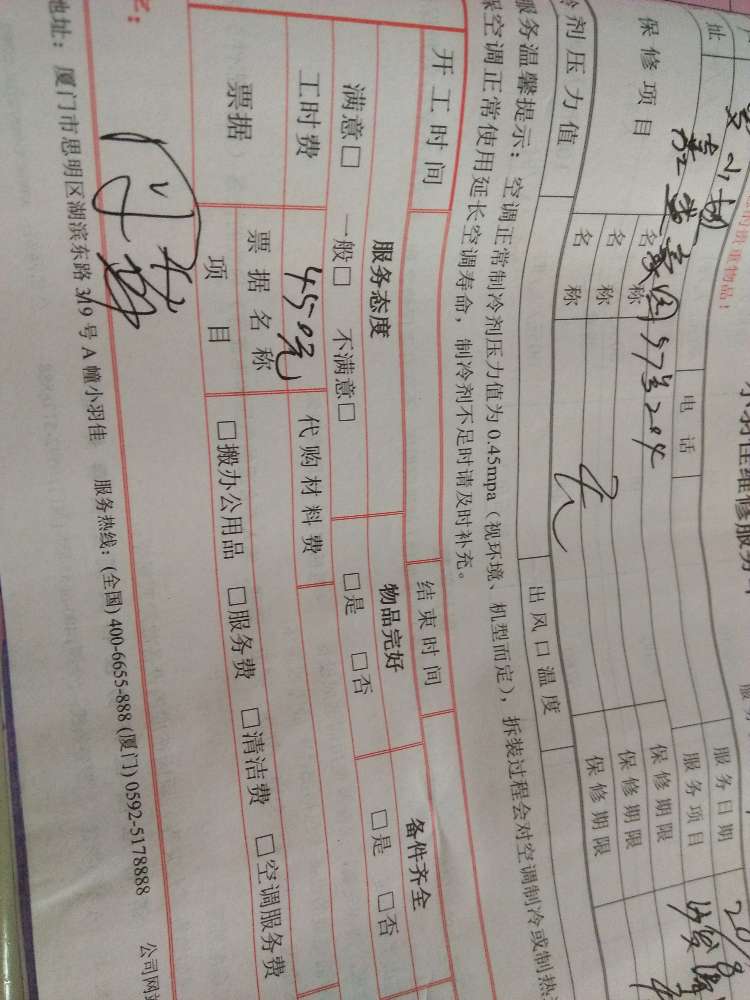 小羽佳维修服务
贵重物品！
址
电话
服务日期
保修项目
名称
服务项目
57号204
名称
保修期限
名称
保修期限
无
保修期限
冷剂压力值
出风口温度
服务温馨提示：空调正常制冷剂压力值为0.45mpa（视环境、机型而定），拆装过程会对空调制冷或制热
保空调正常使用延长空调寿命，制冷剂不足时请及时补充。
开工时间
结束时间
服务态度
物品完好
备件齐全
满意□ 一般□ 不满意□
□是 □否
□是 □否
工时费
450元
代购材料费
票据
票据名称
项目
□搬办公用品 □服务费 □清洁费 □空调服务费
地址：厦门市思明区湖滨东路319号A幢小羽佳 服务热线：(全国) 400-6655-888 (厦门) 0592-5178888 公司网站